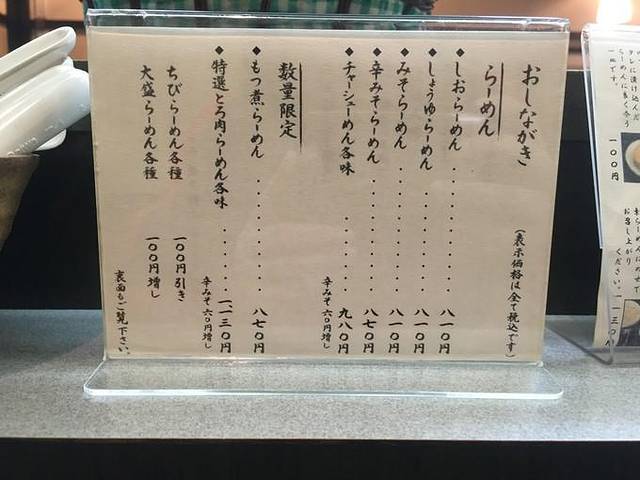 おしながき
(表示価格は全て税込です)
らーめん
◆しおらーめん 八一〇円
◆しょうゆらーめん 八一〇円
◆みそらーめん 八一〇円
◆辛みそらーめん 八七〇円
◆チャーシューめん各味 九八〇円
辛みそ六〇円増し
数量限定
◆もつ煮らーめん 八七〇円
◆特選とろ肉らーめん各味 一一三〇円
辛みそ六〇円増し
ちびらーめん各種 一〇〇円引き
大盛らーめん各種 一〇〇円増し
裏面もご覧下さい。
一〇〇円
お召し上がり
ください。
一三〇円